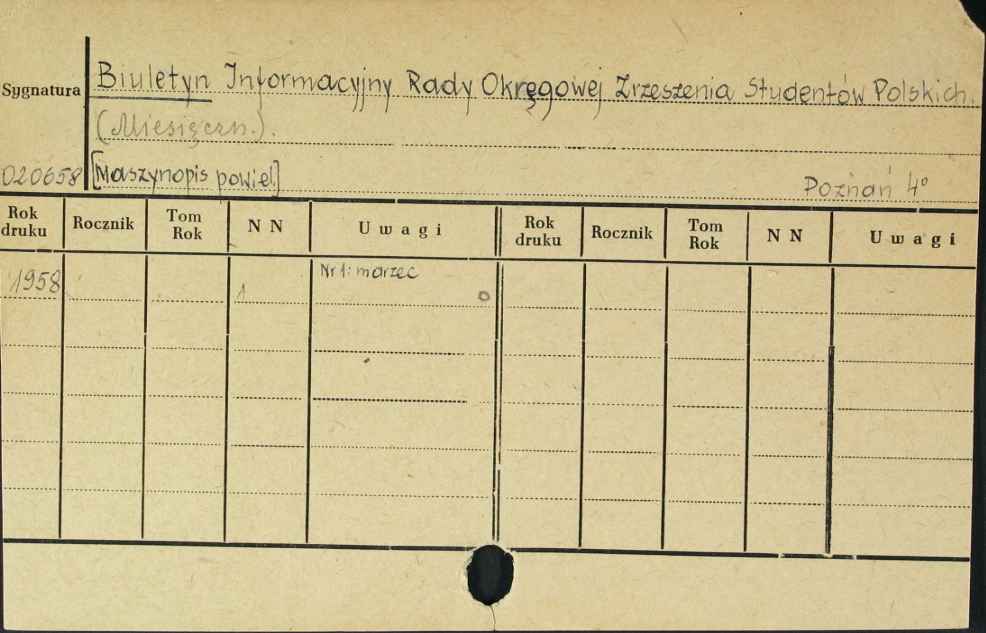 Sygnatura Biuletyn Informacyjny Rady Okręgowej Zrzeszenia Studentów Polskich.
(Miesięczn.).
020658 [Maszynopis powiel] Poznań 4°
Rok druku Rocznik Tom Rok N N Uwagi Rok druku Rocznik Tom Rok N N Uwagi
1958 1 Nr 1: marzec